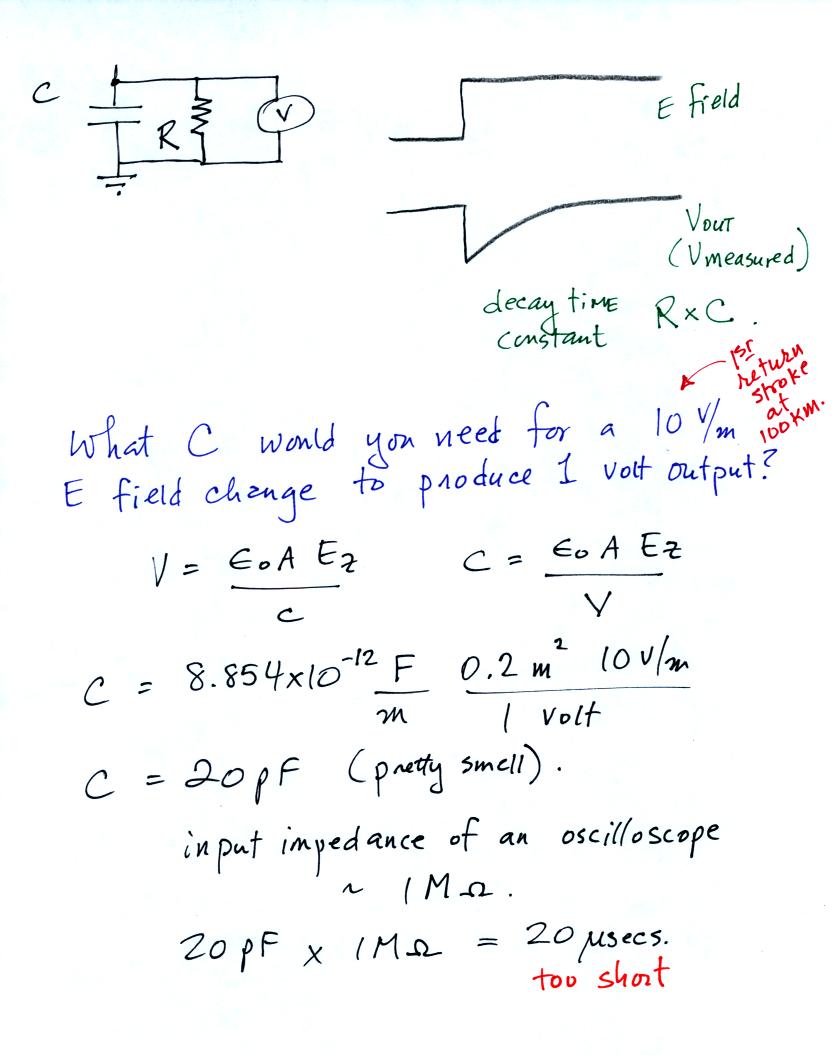 C
R
V
E field
VOUT
(Vmeasured)
decay time
constant
R x C .
1st
return
stroke
at
100 km.
What C would you need for a 10 V/m
E field change to produce 1 volt output?
V = ϵ0 A Ez / C
C = ϵ0 A Ez / V
C = 8.854 x 10^-12 F/m 0.2 m² 10 V/m / 1 volt
C = 20 pF (pretty smell).
input impedance of an oscilloscope
~ 1 MΩ.
20 pF x 1 MΩ = 20 μsecs.
too short